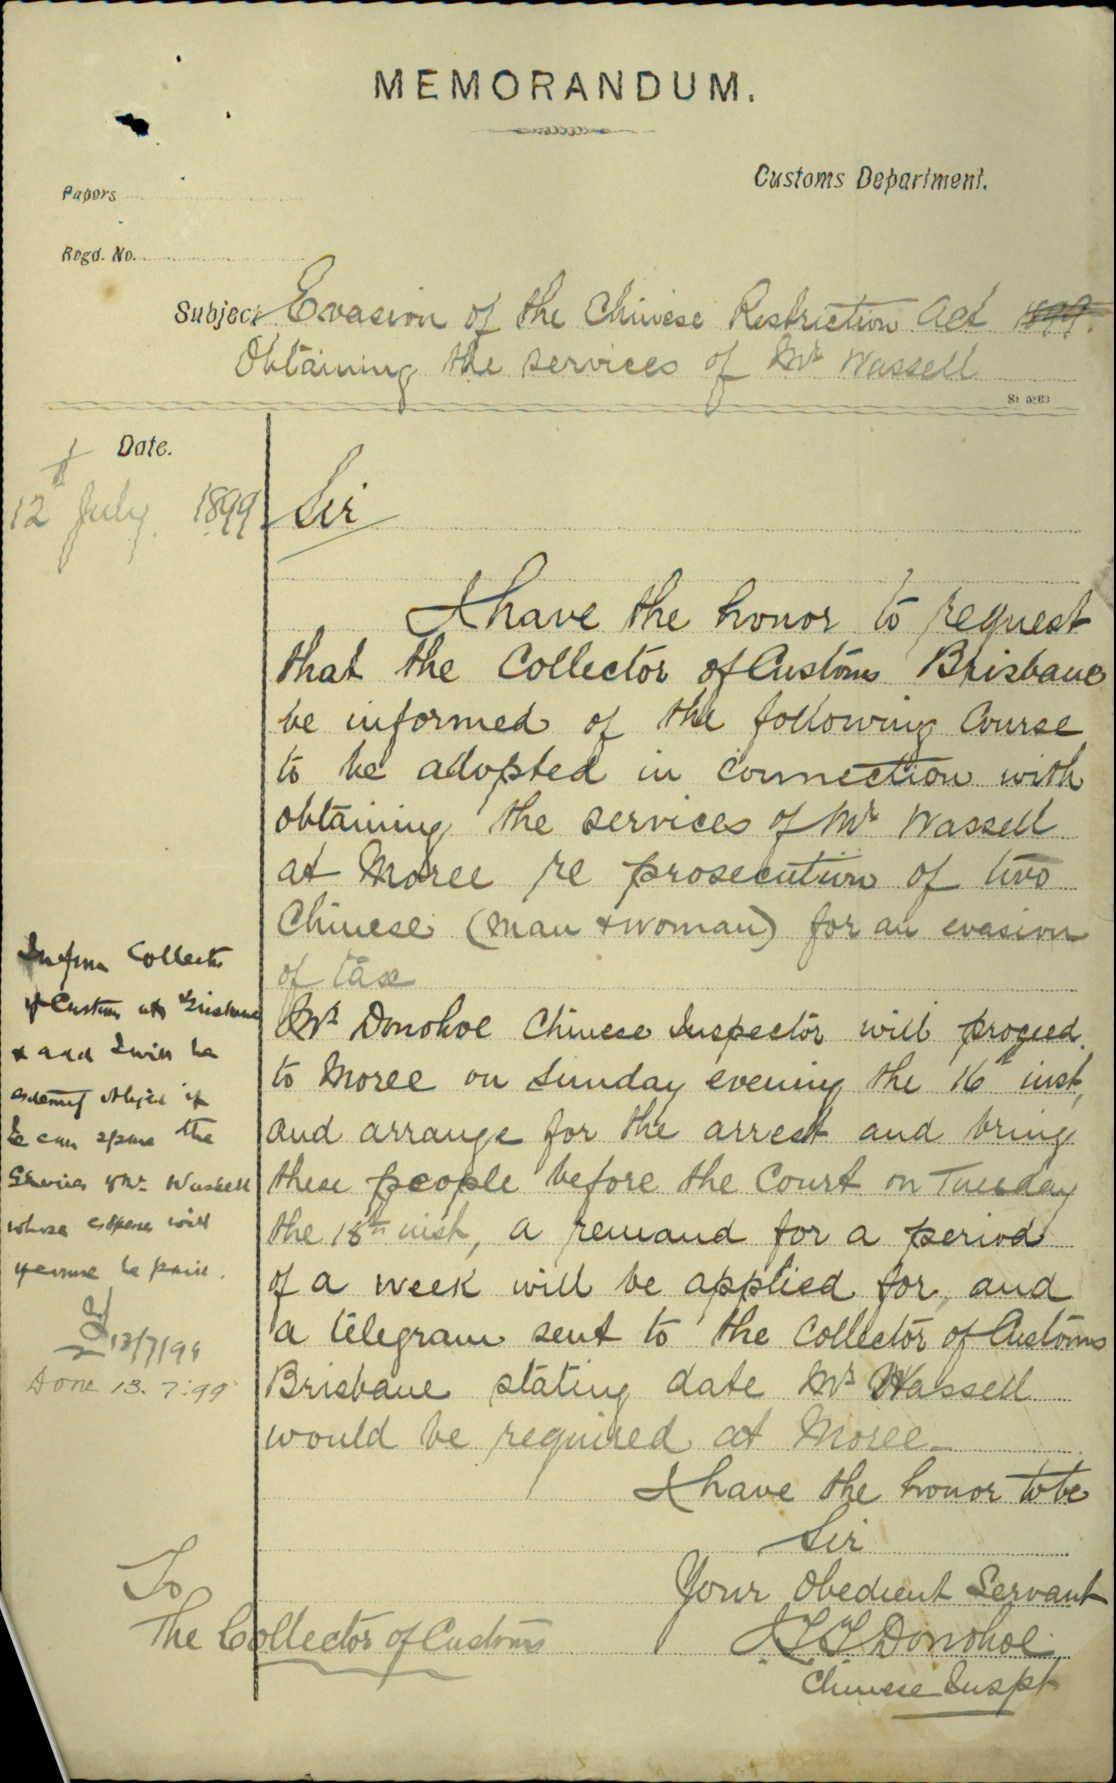 MEMORANDUM.
Customs Department.
Papers
Regd. No.
Subject Evasion of the Chinese Restriction Act 1899.
Obtaining the services of Mr Wassell
St 5263
Date.
12th July 1899
Sir
I have the honor to request
that the Collector of Customs Brisbane
be informed of the following Course
to be adopted in connection with
obtaining the services of Mr Wassell
at Moree re prosecution of two
Chinese (man & woman) for an evasion
of tax
Mr Donohoe Chinese Inspector will proceed
to Moree on Sunday evening the 16th inst,
and arrange for the arrest and bring
these people before the Court on Tuesday
the 18th inst, a remand for a period
of a week will be applied for, and
a telegram sent to the Collector of Customs
Brisbane stating date Mr Wassell
would be required at Moree
I have the honor to be
Sir
Your Obedient Servant
J T T Donohoe
Chinese Inspt
Inform Collector
of Customs at Brisbane
& add I will be
obliged if
he can spare the
Services of Mr Wassell
whose expenses will
be paid.
13/7/99
Done 13.7.99
To
The Collector of Customs